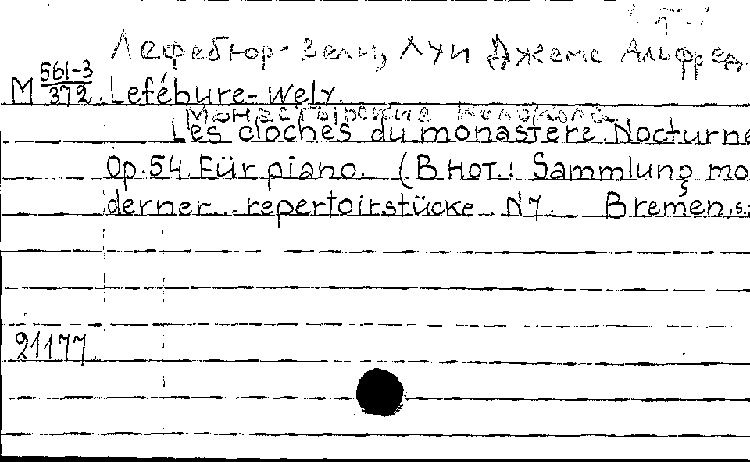 Лефебюр-Вели, Луи Джемс Альфред
M 561-3/372 Lefébure-Wely.
Монастырские колокола
Les cloches du monastère. Nocturne
Op.54. Für piano. (В нот.: Sammlung mo
derner repertoirstücke N7. Bremen, s.
21177